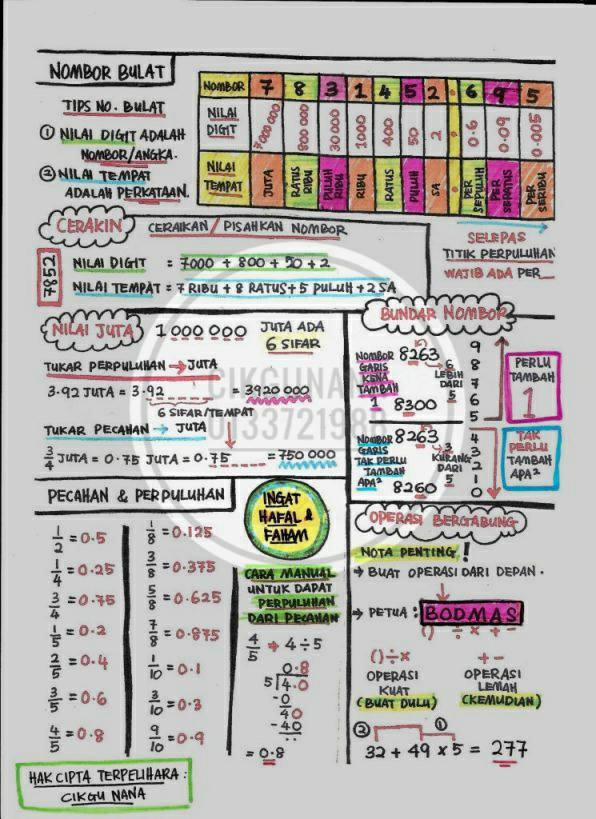 NOMBOR BULAT
TIPS NO. BULAT
① NILAI DIGIT ADALAH
NOMBOR/ANGKA.
② NILAI TEMPAT
ADALAH PERKATAAN.
NOMBOR 7 8 3 1 4 5 2 . 6 9 5
NILAI DIGIT 7000 000 800 000 30 000 1000 400 50 2 . 0.6 0.09 0.005
NILAI TEMPAT JUTA RATUS RIBU PULUH RIBU RIBU RATUS PULUH SA . PER SEPULUH PER SERATUS PER SERIBU
SELEPAS
TITIK PERPULUHAN
WAJIB ADA PER__
CERAKIN CERAIKAN / PISAHKAN NOMBOR
7852
NILAI DIGIT = 7000 + 800 + 50 + 2
NILAI TEMPAT = 7 RIBU + 8 RATUS + 5 PULUH + 2 SA
NILAI JUTA 1 000 000 JUTA ADA
6 SIFAR
TUKAR PERPULUHAN → JUTA
3.92 JUTA = 3.92_ _ _ _ = 3920 000
6 SIFAR/TEMPAT
TUKAR PECAHAN → JUTA
3/4 JUTA = 0.75 JUTA = 0.75_ _ _ _ = 750 000
BUNDAR NOMBOR
NOMBOR GARIS KENA TAMBAH 1
8263
6 LEBIH DARI 5
8300
9
8
7
6
5
PERLU
TAMBAH
1
NOMBOR GARIS TAK PERLU TAMBAH APA²
8263
3 KURANG DARI 5
8260
4
3
2
1
0
TAK
PERLU
TAMBAH
APA²
CIKGUNANA
PECAHAN & PERPULUHAN
1/2 = 0.5
1/4 = 0.25
3/4 = 0.75
1/5 = 0.2
2/5 = 0.4
3/5 = 0.6
4/5 = 0.8
1/8 = 0.125
3/8 = 0.375
5/8 = 0.625
7/8 = 0.875
1/10 = 0.1
3/10 = 0.3
9/10 = 0.9
INGAT
HAFAL &
FAHAM
CARA MANUAL
UNTUK DAPAT
PERPULUHAN
DARI PECAHAN
4/5 → 4 ÷ 5
0.8
5 4.0
-0
40
-40
= 0.8
OPERASI BERGABUNG
NOTA PENTING !
→ BUAT OPERASI DARI DEPAN.
→ PETUA : BODMAS
() ÷ × + -
() ÷ ×
OPERASI
KUAT
(BUAT DULU)
+ -
OPERASI
LEMAH
(KEMUDIAN)
② ①
32 + 49 × 5 = 277
HAK CIPTA TERPELIHARA :
CIKGU NANA